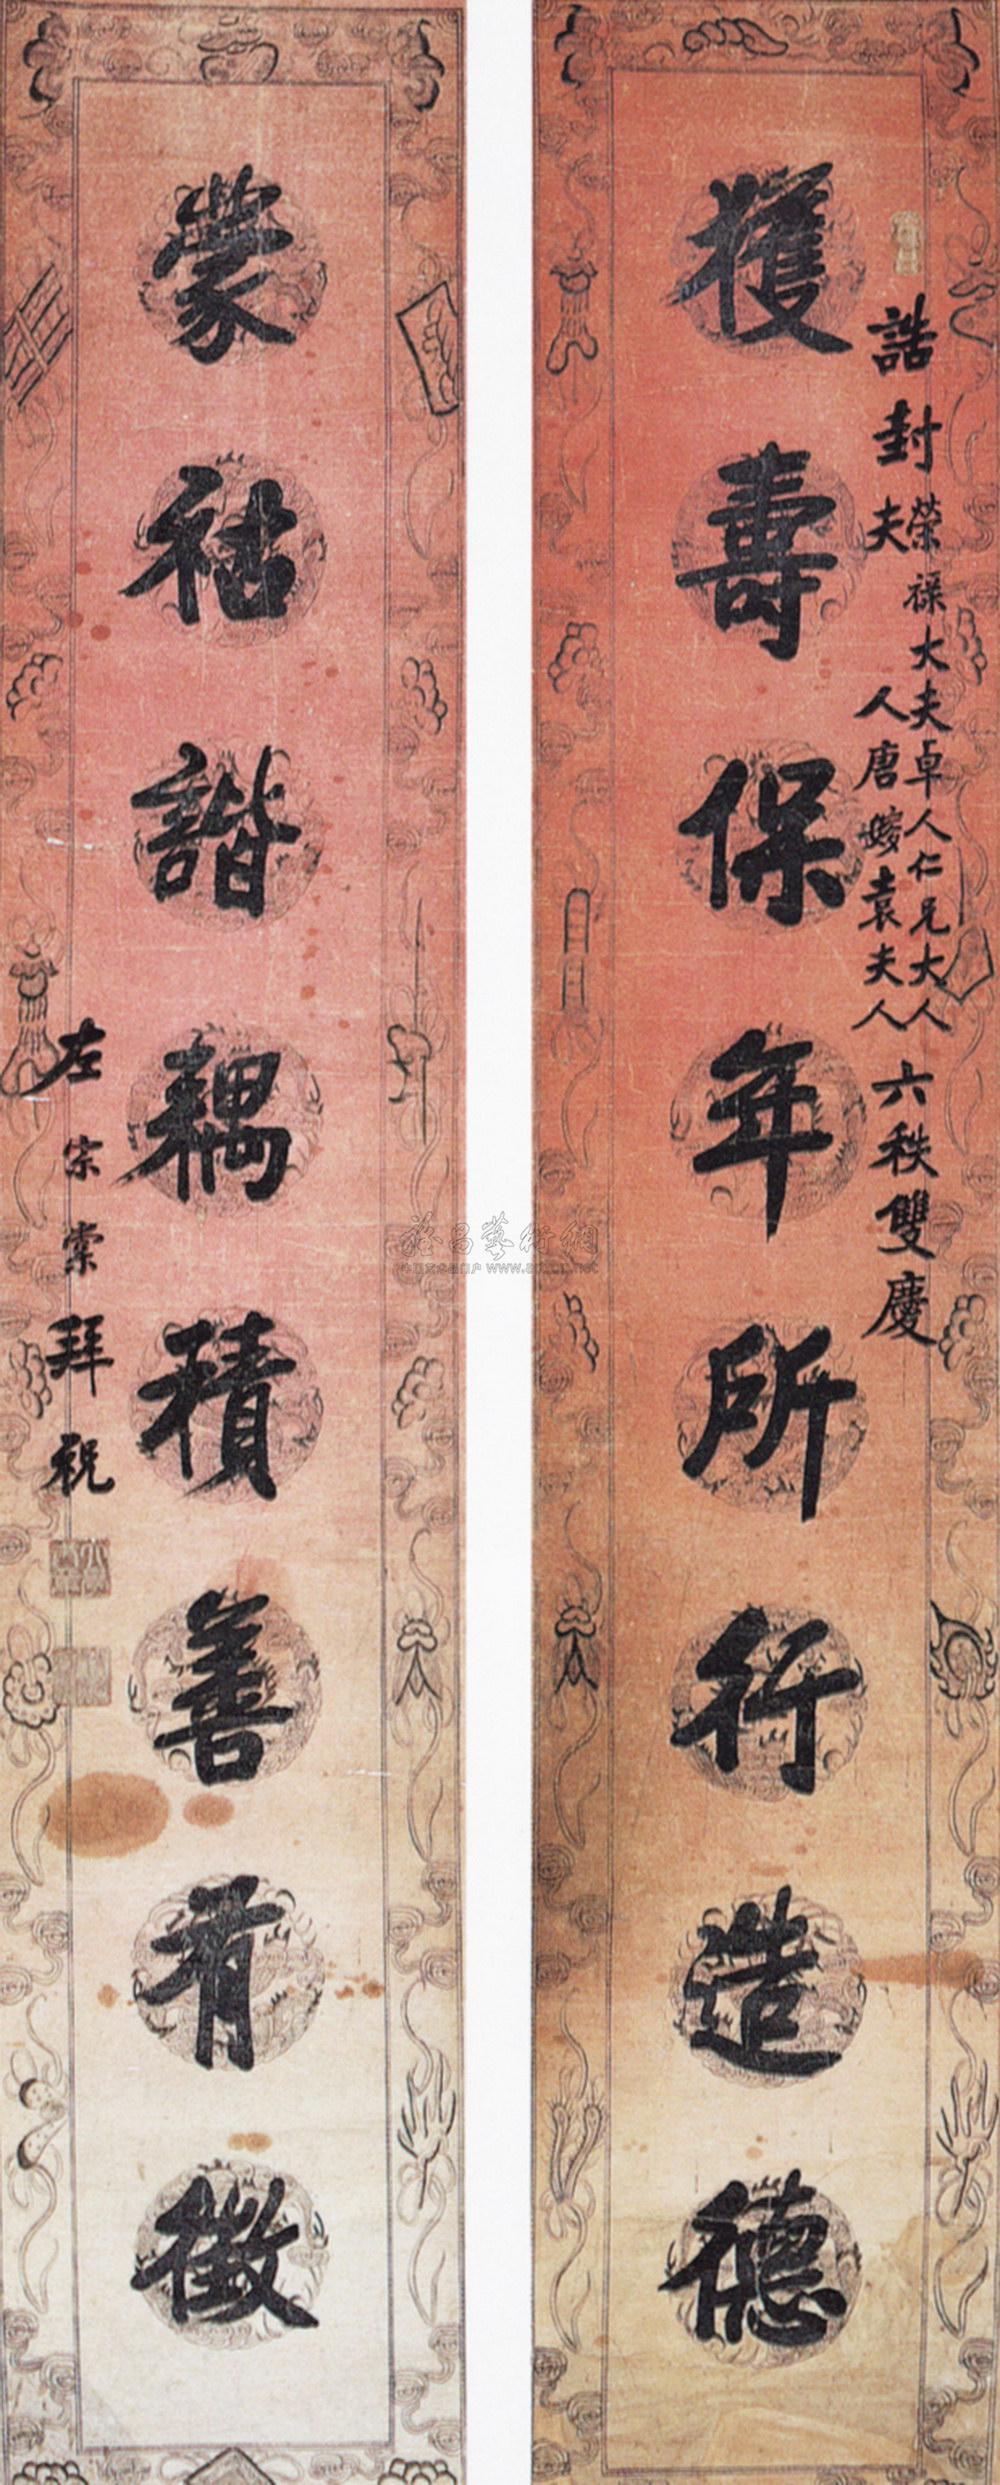 獲壽保年所行造德
誥封榮祿大夫卓人仁兄大人
夫人唐嫂袁夫人
六秩雙慶
蒙祜諧耦積善有徵
左宗棠拜祝
www.